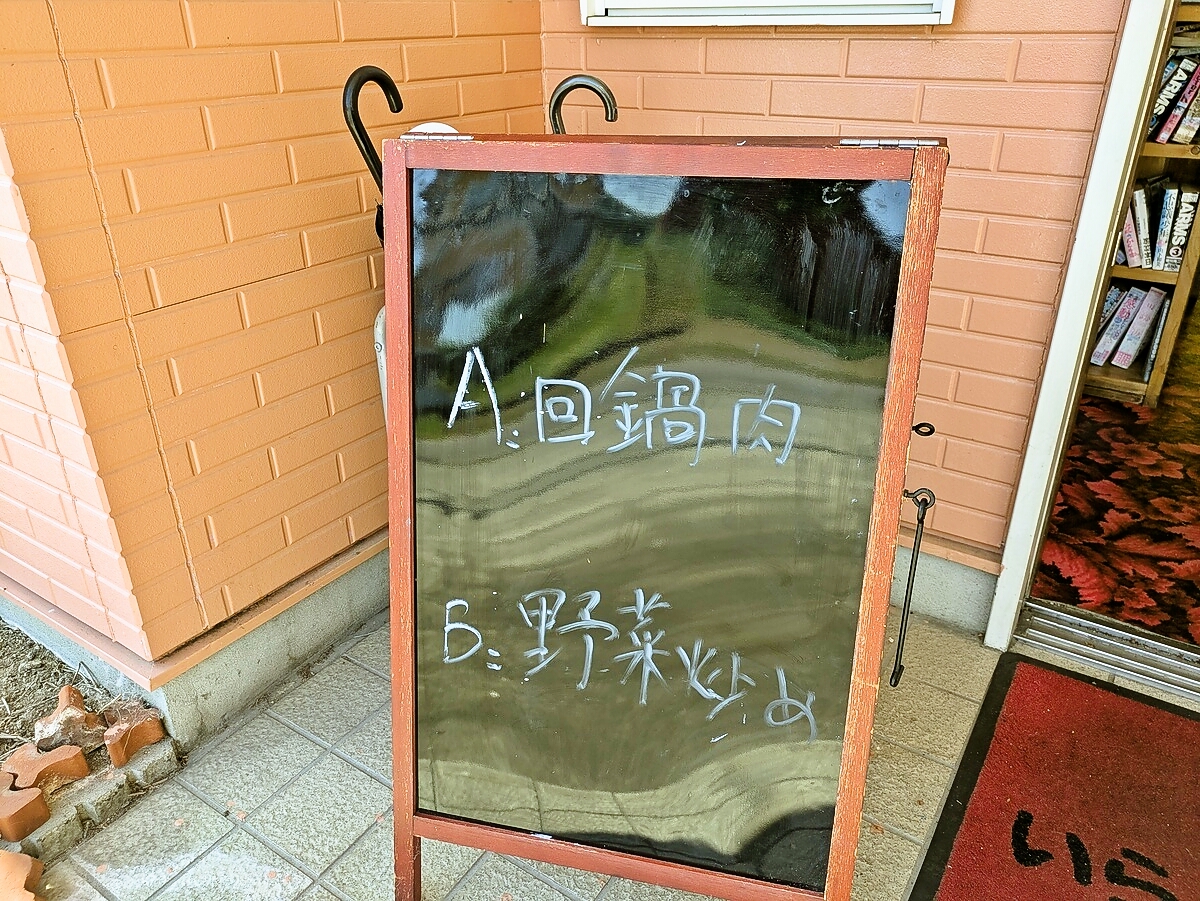 A:回鍋肉
B:野菜炒め
いら
ARMS
ARMS